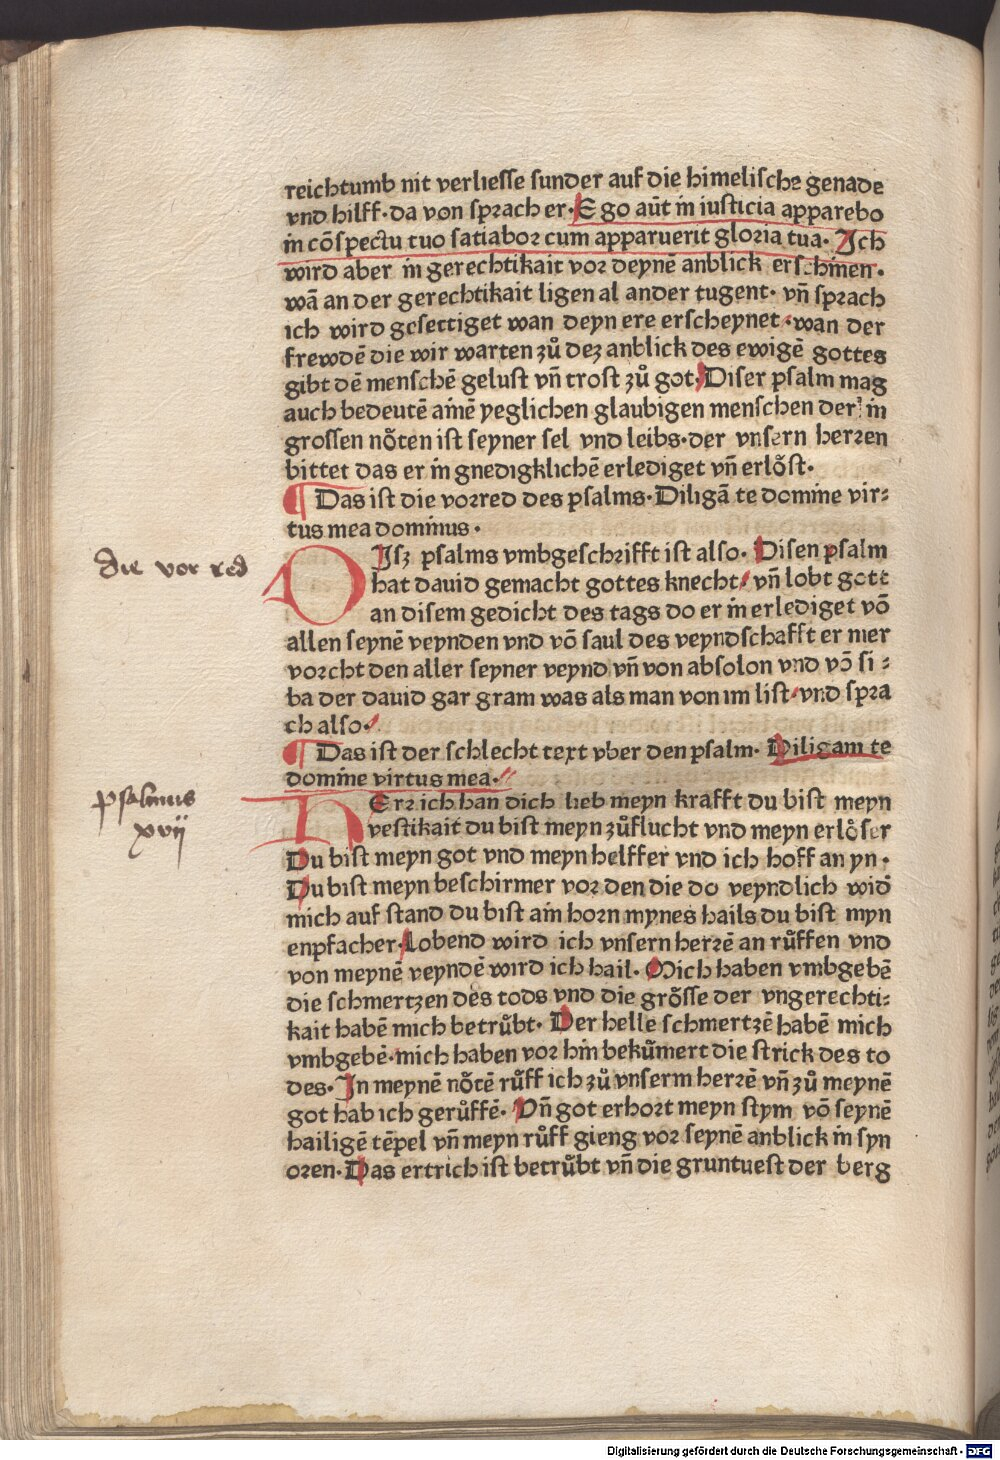 reichtumb nit verliesse sunder auf die himelische genade
vnd hilff·da von sprach er·Ego aūt in iusticia apparebo
in cōspectu tuo satiabor cum apparuerit gloria tua· Jch
wird aber in gerechtikait vor deynē anblick erschinen·
wā an der gerechtikait ligen al ander tugent· vn̄ sprach
ich wird gesettiget wan deyn ere erscheynet·wan der
frewdē die wir warten zů dez anblick des ewigē gottes
gibt dē menschē gelust vn̄ trost zů got·Diser psalm mag
auch bedeutē ainē yeglichen glaubigen menschen der in
grossen nöten ist seyner sel vnd leibs·der vnsern herren
bittet das er in gnedigklichē erlediget vn̄ erlöst·
¶ Das ist die vorred des psalms·Diligā te domine vir-
tus mea dominus·
die vor red
DIsz psalms vmbgeschrifft ist also· Disen psalm
hat dauid gemacht gottes knecht/ vn̄ lobt gott
an disem gedicht des tags do er in erlediget vō
allen seynē veynden vnd vō saul des veyndschafft er mer
vorcht den aller seyner veynd vn̄ von absolon vnd vō si-
ba der dauid gar gram was als man von im list·vnd spra
ch also·
¶ Das ist der schlecht text vber den psalm· Diligam te
domine virtus mea·
psalmus
xvij
HErr ich han dich lieb meyn krafft du bist meyn
vestikait du bist meyn zůflucht vnd meyn erlöser
Du bist meyn got vnd meyn helffer vnd ich hoff an yn·
Du bist meyn beschirmer vor den die do veyndlich wid̄
mich auf stand du bist ain horn mynes hails du bist myn
enpfacher·Lobend wird ich vnsern herrē an růffen vnd
von meynē veyndē wird ich hail· Mich haben vmbgebē
die schmertzen des tods vnd die grösse der vngerechti-
kait habē mich betrůbt· Der helle schmertzē habē mich
vmbgebē·mich haben vor hin bekümert die strick des to
des·Jn meynē nötē růff ich zů vnserm herrē vn̄ zů meynē
got hab ich gerůffē· Vn̄ got erhort meyn stym vō seynē
hailigē tēpel vn̄ meyn růff gieng vor seynē anblick in syn
oren·Das ertrich ist betrůbt vn̄ die gruntuest der berg
Digitalisierung gefördert durch die Deutsche Forschungsgemeinschaft - DFG